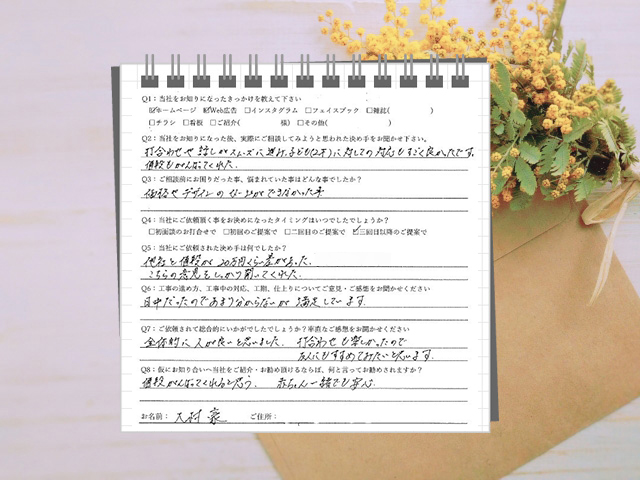 Q1：当社をお知りになったきっかけを教えて下さい
☑ホームページ ☑Web広告 □インスタグラム □フェイスブック □雑誌( )
□チラシ □看板 □ご紹介( 様) □その他( )
Q2：当社をお知りになった後、実際にご相談してみようと思われた決め手をお聞かせ下さい。
打合わせや話しがスムーズに進み、子ども(2才)に対しての対応もすごく良かったです。
値段もがんばってくれた。
Q3：ご相談前にお困りだった事、悩まれていた事はどんな事でしたか？
価格やデザインの イメージができなかった事
Q4：当社にご依頼頂く事をお決めになったタイミングはいつでしたでしょうか？
□初面談のお打合せで □初回のご提案で □二回目のご提案で ☑三回目以降のご提案で
Q5：当社にご依頼された決め手は何でしたか？
他社と値段が20万円くらい差があった。
こちらの意見をしっかり聞いてくれた。
Q6：工事の進め方、工事中の対応、工期、仕上りについてご意見・ご感想をお聞かせください
日中だったのであまり分からないが 満足しています。
Q7：ご依頼されて総合的にいかがでしたでしょうか？率直なご感想をお聞かせください
全体的に人が良いと思いました。 打合わせも楽しかったので
友人にもすすめてみたいと思います。
Q8：仮にお知り合いへ当社をご紹介・お勧め頂けるならば、何と言ってお勧めされますか？
値段がんばってくれると思う。 赤ちゃん一緒でも安心
お名前： ご住所：